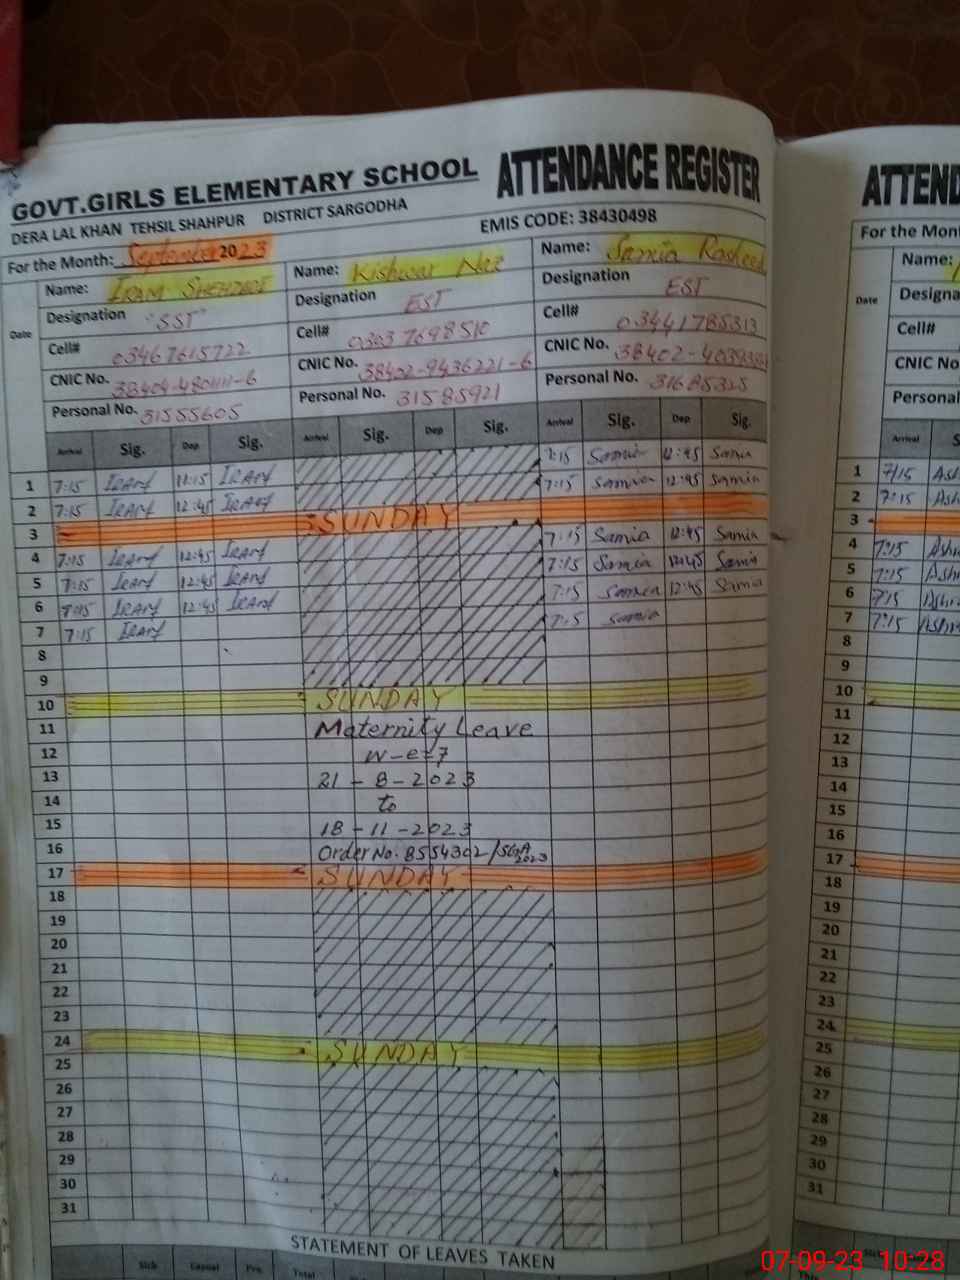 GOVT.GIRLS ELEMENTARY SCHOOL ATTENDANCE REGISTER
DERA LAL KHAN TEHSIL SHAHPUR DISTRICT SARGODHA EMIS CODE: 38430498
For the Month: September 2023
Name: Name: Kishwar Name: Samia Rasheed
Designation "SST" Designation EST Designation EST
Cell# 03467615722 Cell# Cell# 03441785313
CNIC No. CNIC No. 38402-9436221-6 CNIC No.
Personal No. 31555605 Personal No. 31585921 Personal No.
Date Arrival Sig. Dep Sig. Arrival Sig. Dep Sig. Arrival Sig. Dep Sig.
1 7:15 IRAM 11:15 IRAM 7:15 Samia Samia
2 7:15 IRAM 12:45 IRAM 7:15 Samia 12:45 Samia
3 SUNDAY
4 7:15 IRAM 12:45 IRAM 7:15 Samia 12:45 Samia
5 7:15 IRAM 12:45 IRAM 7:15 Samia 12:45 Samia
6 7:15 IRAM 12:45 IRAM 7:15 Samia 12:45 Samia
7 7:15 IRAM 7:15 Samia
8
9
10 SUNDAY
11 Maternity Leave
12
13 21-8-2023
14 to
15 18-11-2023
16 Order No. 8554302/SGA 2023
17 SUNDAY
18
19
20
21
22
23
24 SUNDAY
25
26
27
28
29
30
31
STATEMENT OF LEAVES TAKEN
Sick Casual Total
ATTEND
For the Mont
Name:
Date Designa
Cell#
CNIC No
Personal
Arrival S
1 7/15 Ash
2 7:15 Ash
3
4 7:15 Ash
5 7:15 Ash
6 7:15 Ash
7 7:15 Ash
8
9
10
11
12
13
14
15
16
17
18
19
20
21
22
23
24
25
26
27
28
29
30
31
07-09-23 10:28